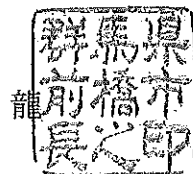 群馬県
前橋市
長之印
龍